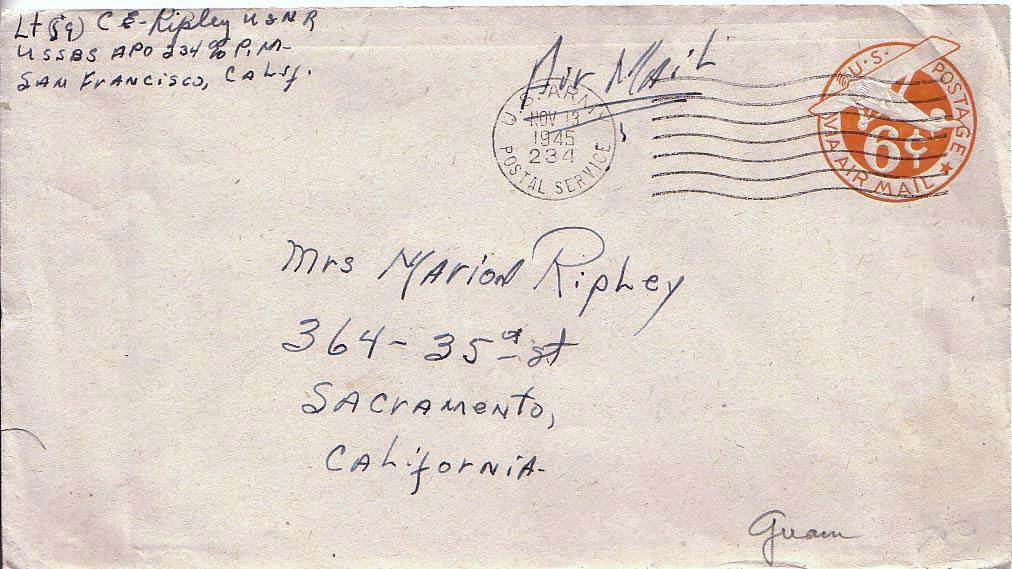 Lt (jg) C E- Ripley USNR
USSBS APO 234 c/o P.M-
SAN FrANCisco, CALif.
Air MAiL
U.S. ARMY
NOV 13
1945
234
POSTAL SERVICE
U.S. POSTAGE
6¢
VIA AIR MAIL
Mrs MArion RipLey
364- 35th st
SACrAMENto,
CALiforNiA-
Guam